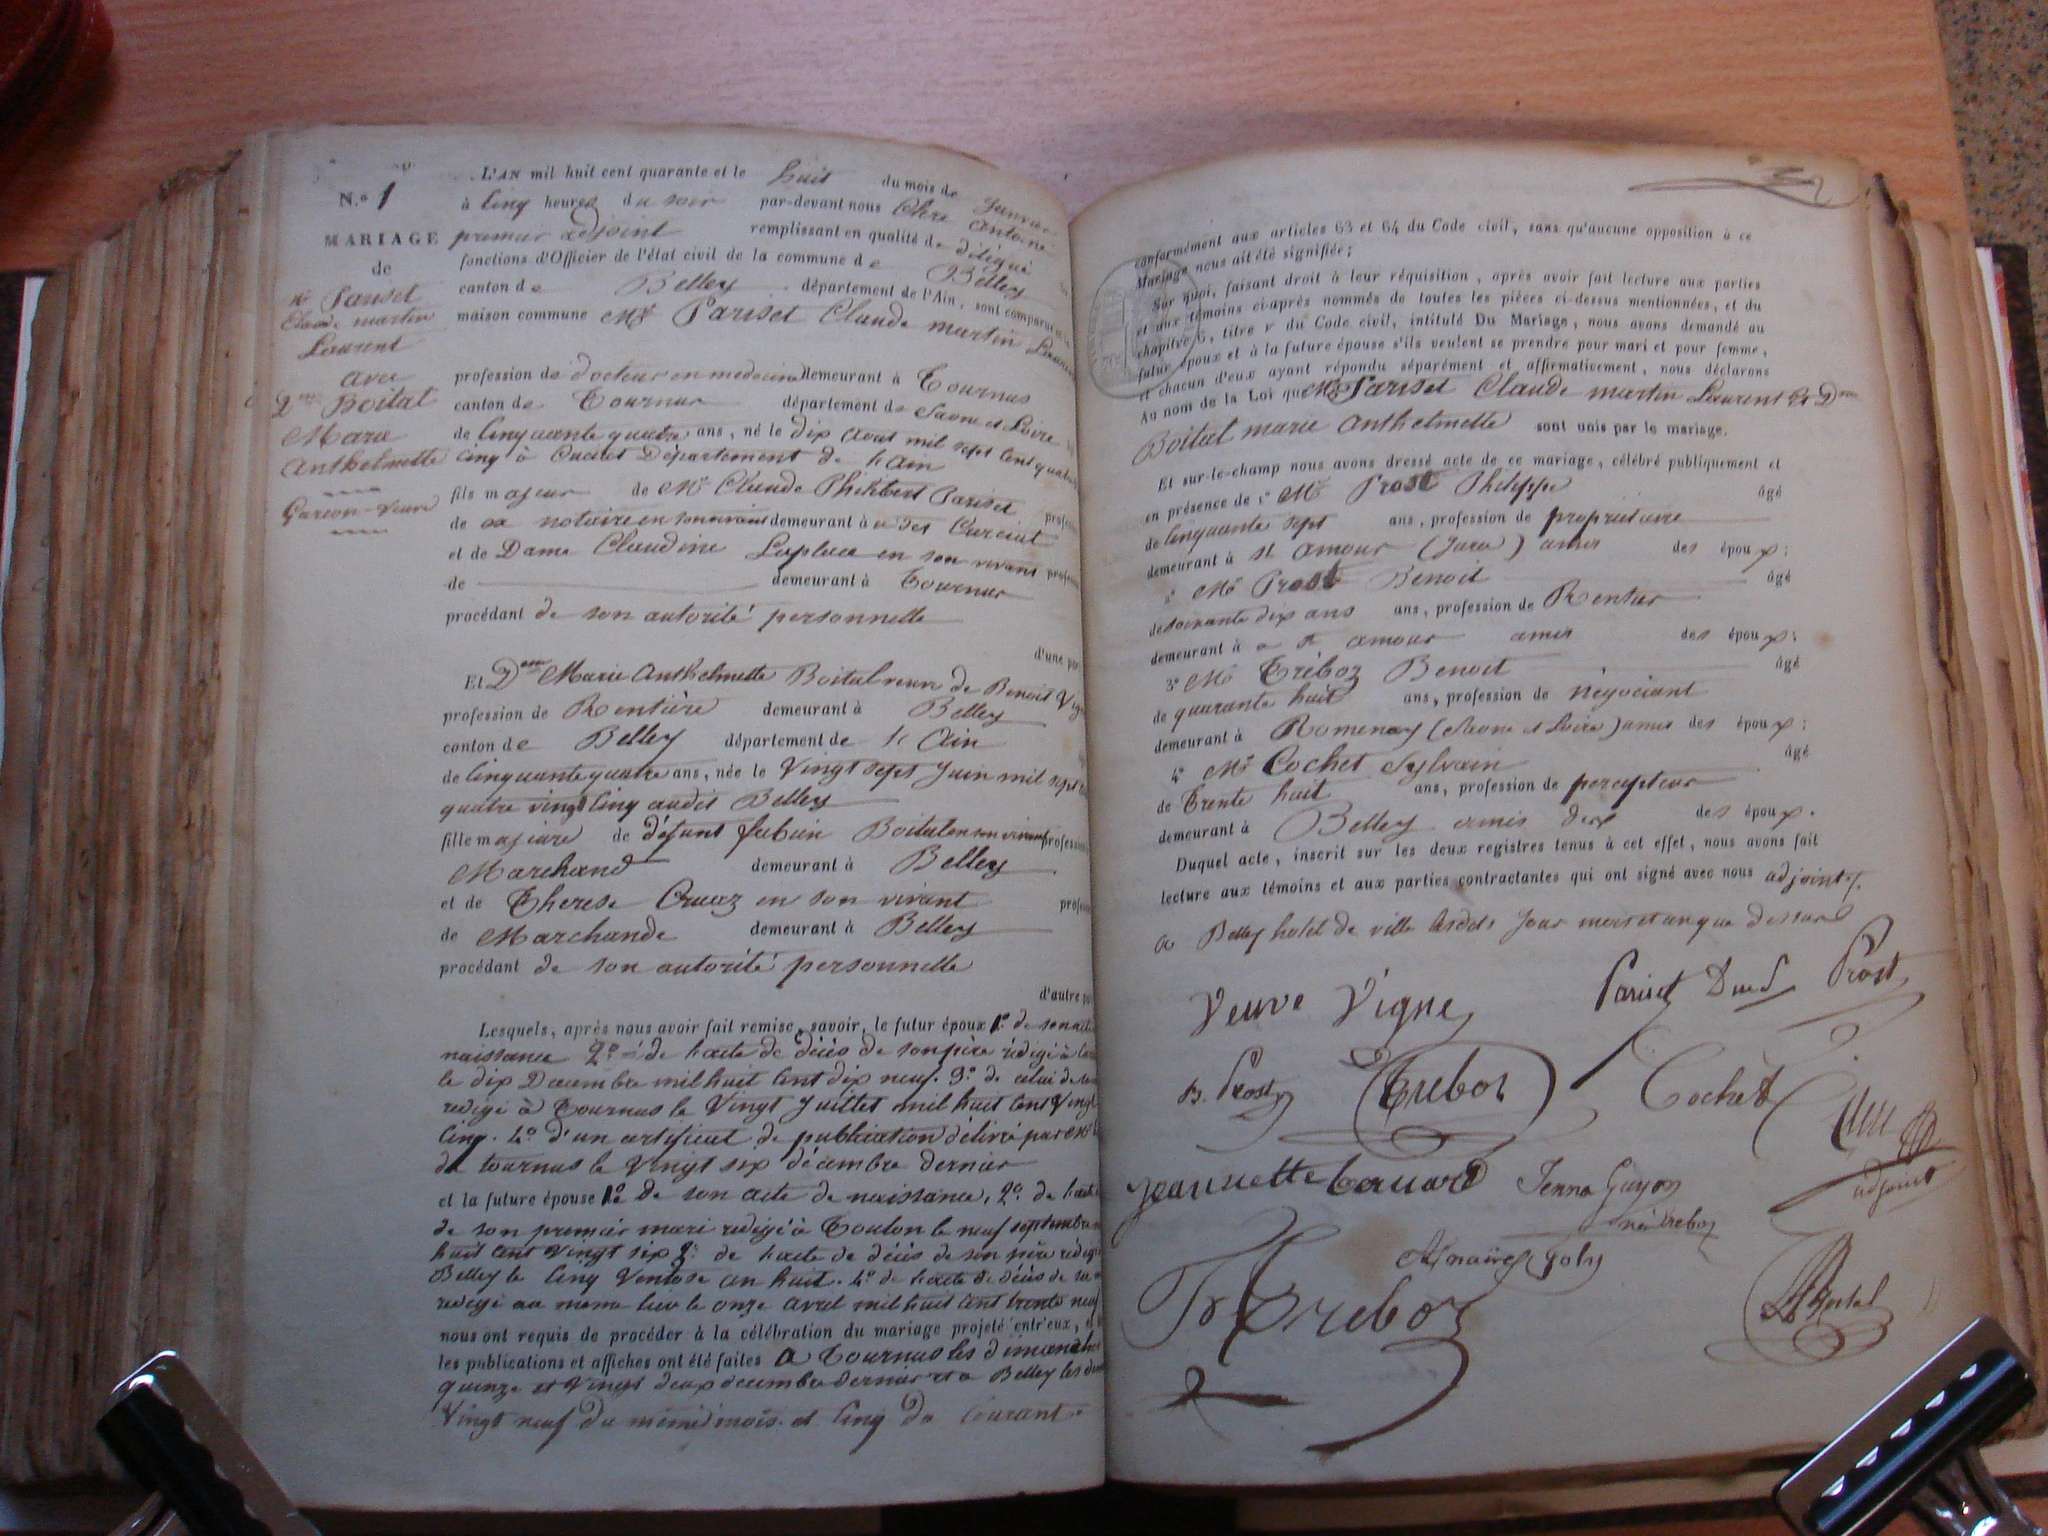 N.º 1
MARIAGE
de
Mr Pariset
Claude martin
Laurent
avec
Dme Boital
Marie
anthelmette
Garcon-Veuve
L'AN mil huit cent quarante et le huit du mois de Janvier
à Cinq heures du soir par-devant nous antoine
premier adjoint remplissant en qualité de délégué
fonctions d'Officier de l'état civil de la commune de Belley
canton de Belley département de l'Ain, sont comparus
maison commune Mr Pariset Claude martin Laurent
profession de docteur en medecine demeurant à Tournus
canton de Tournus département de Saone et Loire
de Cinquante quatre ans, né le dix aout mil sept cent quatre
cinq à Département de l'ain
fils majeur de Mr Claude Philibert Pariset
de notaire en son vivant demeurant à
et de Dame Claudine Laplace en son vivant
de demeurant à Tournus
procédant de son autorité personnelle
d'une part
Et Dme Marie anthelmette Boital veuve de Benoit Vigne
profession de Rentière demeurant à Belley
canton de Belley département de l'Ain
de Cinquante quatre ans, née le Vingt sept Juin mil sept
quatre vingt cinq audit Belley
fille majeure de défunt fabien Boital en son vivant profession
Marchand demeurant à Belley
et de Therese Cruaz en son vivant
de Marchande demeurant à Belley
procédant de son autorité personnelle
d'autre part
Lesquels, après nous avoir fait remise, savoir, le futur époux 1º de son acte
naissance 2º de l'acte de décès de son père rédigé à
le dix Decembre mil huit Cent dix neuf. 3º de celui de
redigé à Tournus le Vingt Juillet mil huit Cent Vingt
Cinq. 4º d'un certificat de publication délivré par Mr
de tournus le Vingt six décembre dernier
et la future épouse 1º de son acte de naissance, 2º de l'acte
de son premier mari redigé à Toulon le neuf septembre
huit cent Vingt six 3º de l'acte de décès de son père rédigé
Belley le Cinq Ventose an huit. 4º de l'acte de décès de sa
redigé au même lieu le onze avril mil huit cent trente neuf
nous ont requis de procéder à la célébration du mariage projeté entr'eux,
les publications et affiches ont été faites a Tournus les dimanches
quinze et Vingt deux decembre dernier et a Belley les
Vingt neuf du même mois et Cinq du Courant
conformément aux articles 63 et 64 du Code civil, sans qu'aucune opposition à ce
Mariage nous ait été signifiée;
Sur quoi, faisant droit à leur réquisition, après avoir fait lecture aux parties
et aux témoins ci-après nommés de toutes les pièces ci-dessus mentionnées, et du
chapitre 6, titre v du Code civil, intitulé Du Mariage, nous avons demandé au
futur époux et à la future épouse s'ils veulent se prendre pour mari et pour femme,
et chacun d'eux ayant répondu séparément et affirmativement, nous déclarons
Au nom de la Loi que Mr Pariset Claude martin Laurent et Dme
Boital marie anthelmette sont unis par le mariage.
Et sur-le-champ nous avons dressé acte de ce mariage, célébré publiquement et
en présence de 1º Mr Prost Philippe âgé
de Cinquante sept ans, profession de propriétaire
demeurant à st amour (Jura) amis des époux;
2º Mr Prost Benoit âgé
de soixante dix ans ans, profession de Rentier
demeurant à St amour amis des époux;
3º Mr Tréboz Benoit âgé
de quarante huit ans, profession de négociant
demeurant à Romenay (Saone et Loire) amis des époux;
4º Mr Cochet Sylvain âgé
de Trente huit ans, profession de percepteur
demeurant à Belley amis des époux.
Duquel acte, inscrit sur les deux registres tenus à cet effet, nous avons fait
lecture aux témoins et aux parties contractantes qui ont signé avec nous adjoint
a Belley hotel de ville lesdits Jour mois et an que dessus
Veuve Vigne Pariset Prost
B. Prost Treboz Cochet
adjoint
Jeannette Guyon
née treboz
Goly
Treboz